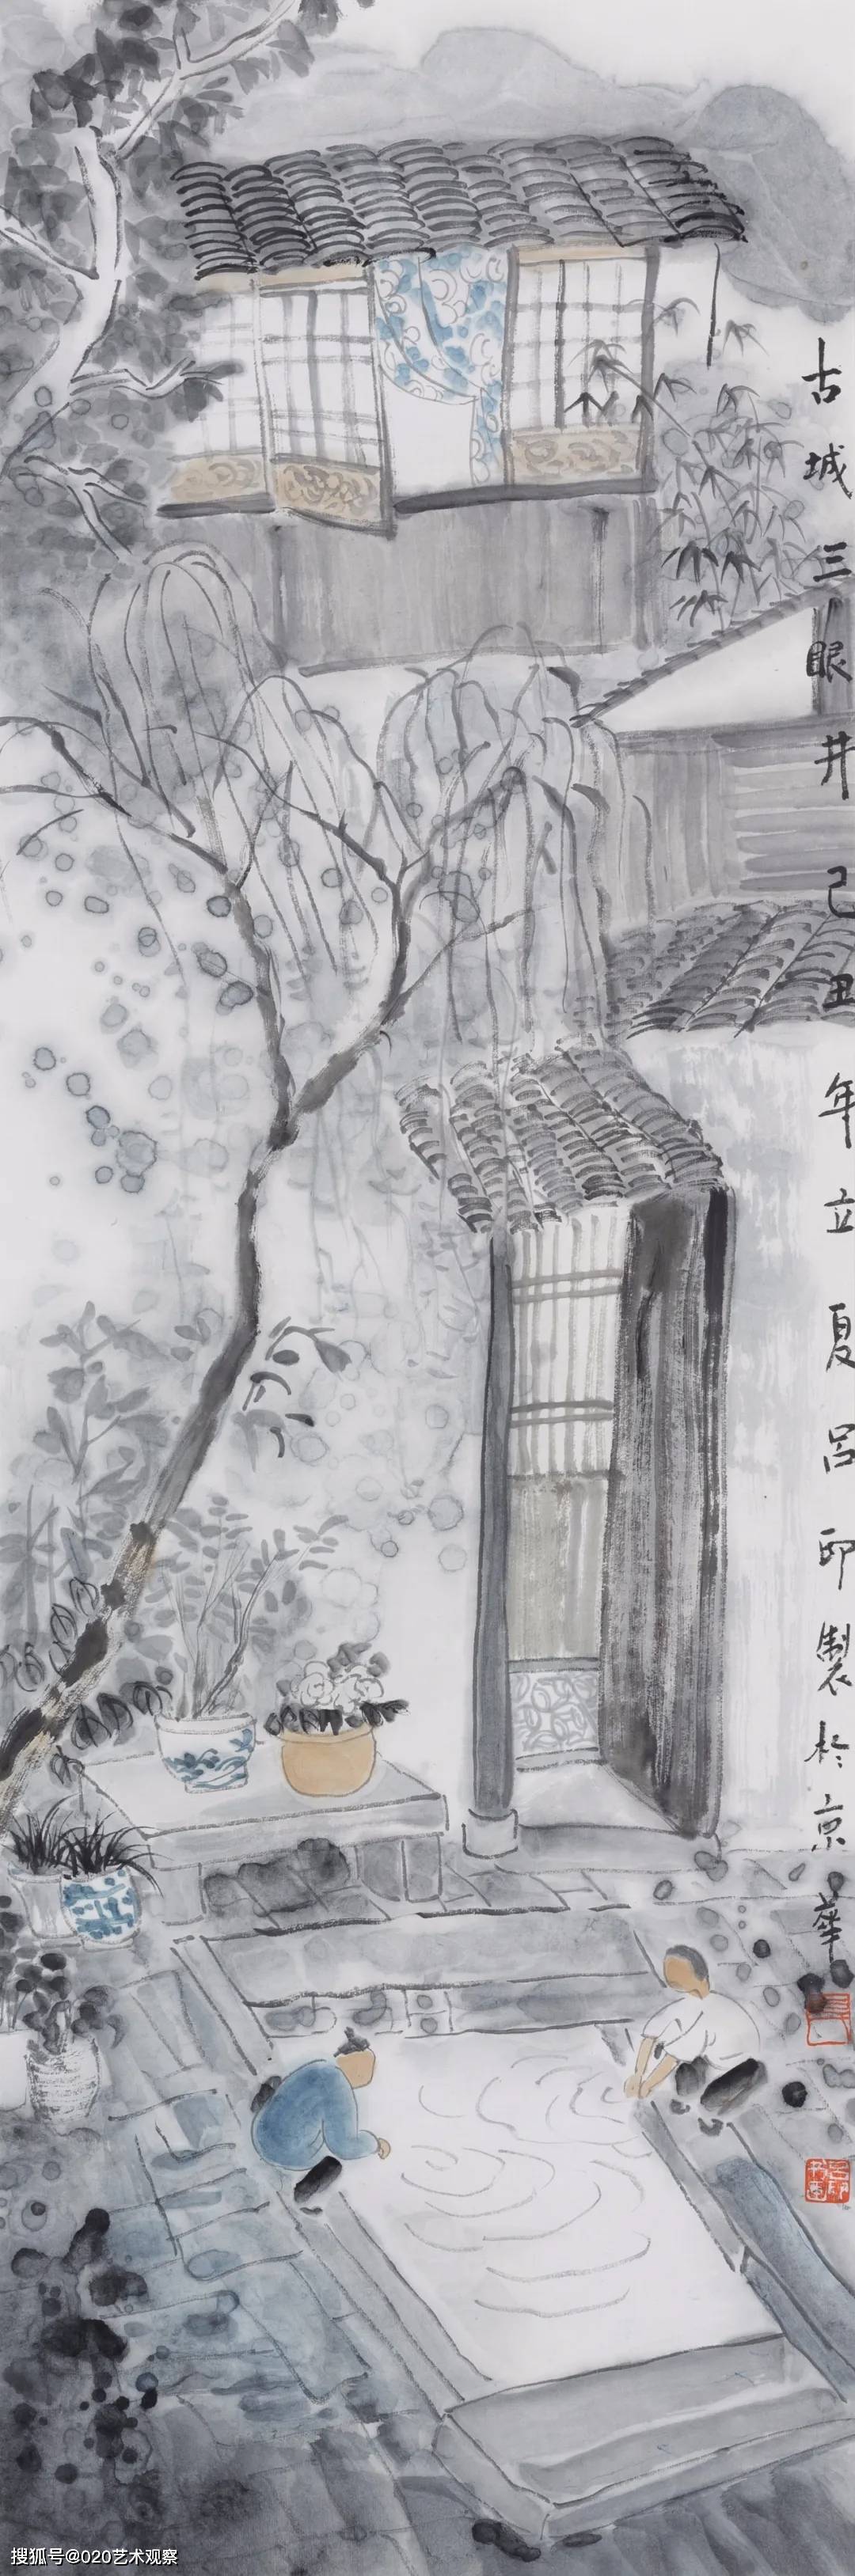 古城三眼井己丑年立夏吕印製於京華
搜狐号@020艺术观察